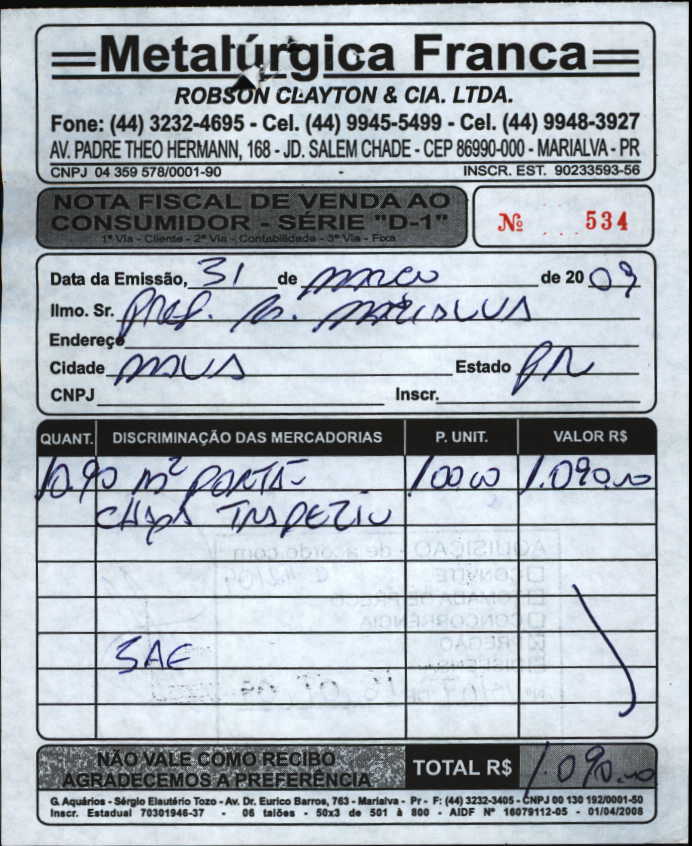 Metalúrgica Franca
ROBSON CLAYTON & CIA. LTDA.
Fone: (44) 3232-4695 - Cel. (44) 9945-5499 - Cel. (44) 9948-3927
AV. PADRE THEO HERMANN, 168 - JD. SALEM CHADE - CEP 86990-000 - MARIALVA - PR
CNPJ 04 359 578/0001-90 INSCR. EST. 90233593-56
NOTA FISCAL DE VENDA AO
CONSUMIDOR - SÉRIE "D-1"
1ª Via - Cliente - 2ª Via - Contabilidade - 3ª Via - Fixa
Nº 534
Data da Emissão, 31 de março de 2009
Ilmo. Sr. Pref. M. Marialva
Endereço
Cidade Estado PR
CNPJ Inscr.
QUANT. DISCRIMINAÇÃO DAS MERCADORIAS P. UNIT. VALOR R$
10.90 m² PORTÃO 100 00 1.090,00
CHAPA
AQUISIÇÃO - de acordo com
CONVITE
TOMADA DE PREÇO
CONCORRÊNCIA
PREGÃO
DISPENSA
SAE
NÃO VALE COMO RECIBO
AGRADECEMOS A PREFERÊNCIA
TOTAL R$ 1.090,00
G. Aquários - Sérgio Elautério Tozo - Av. Dr. Eurico Barros, 763 - Marialva - Pr - F: (44) 3232-3405 - CNPJ 00 130 192/0001-50
Inscr. Estadual 70301946-37 - 06 talões - 50x3 de 501 à 800 - AIDF Nº 16079112-05 - 01/04/2008